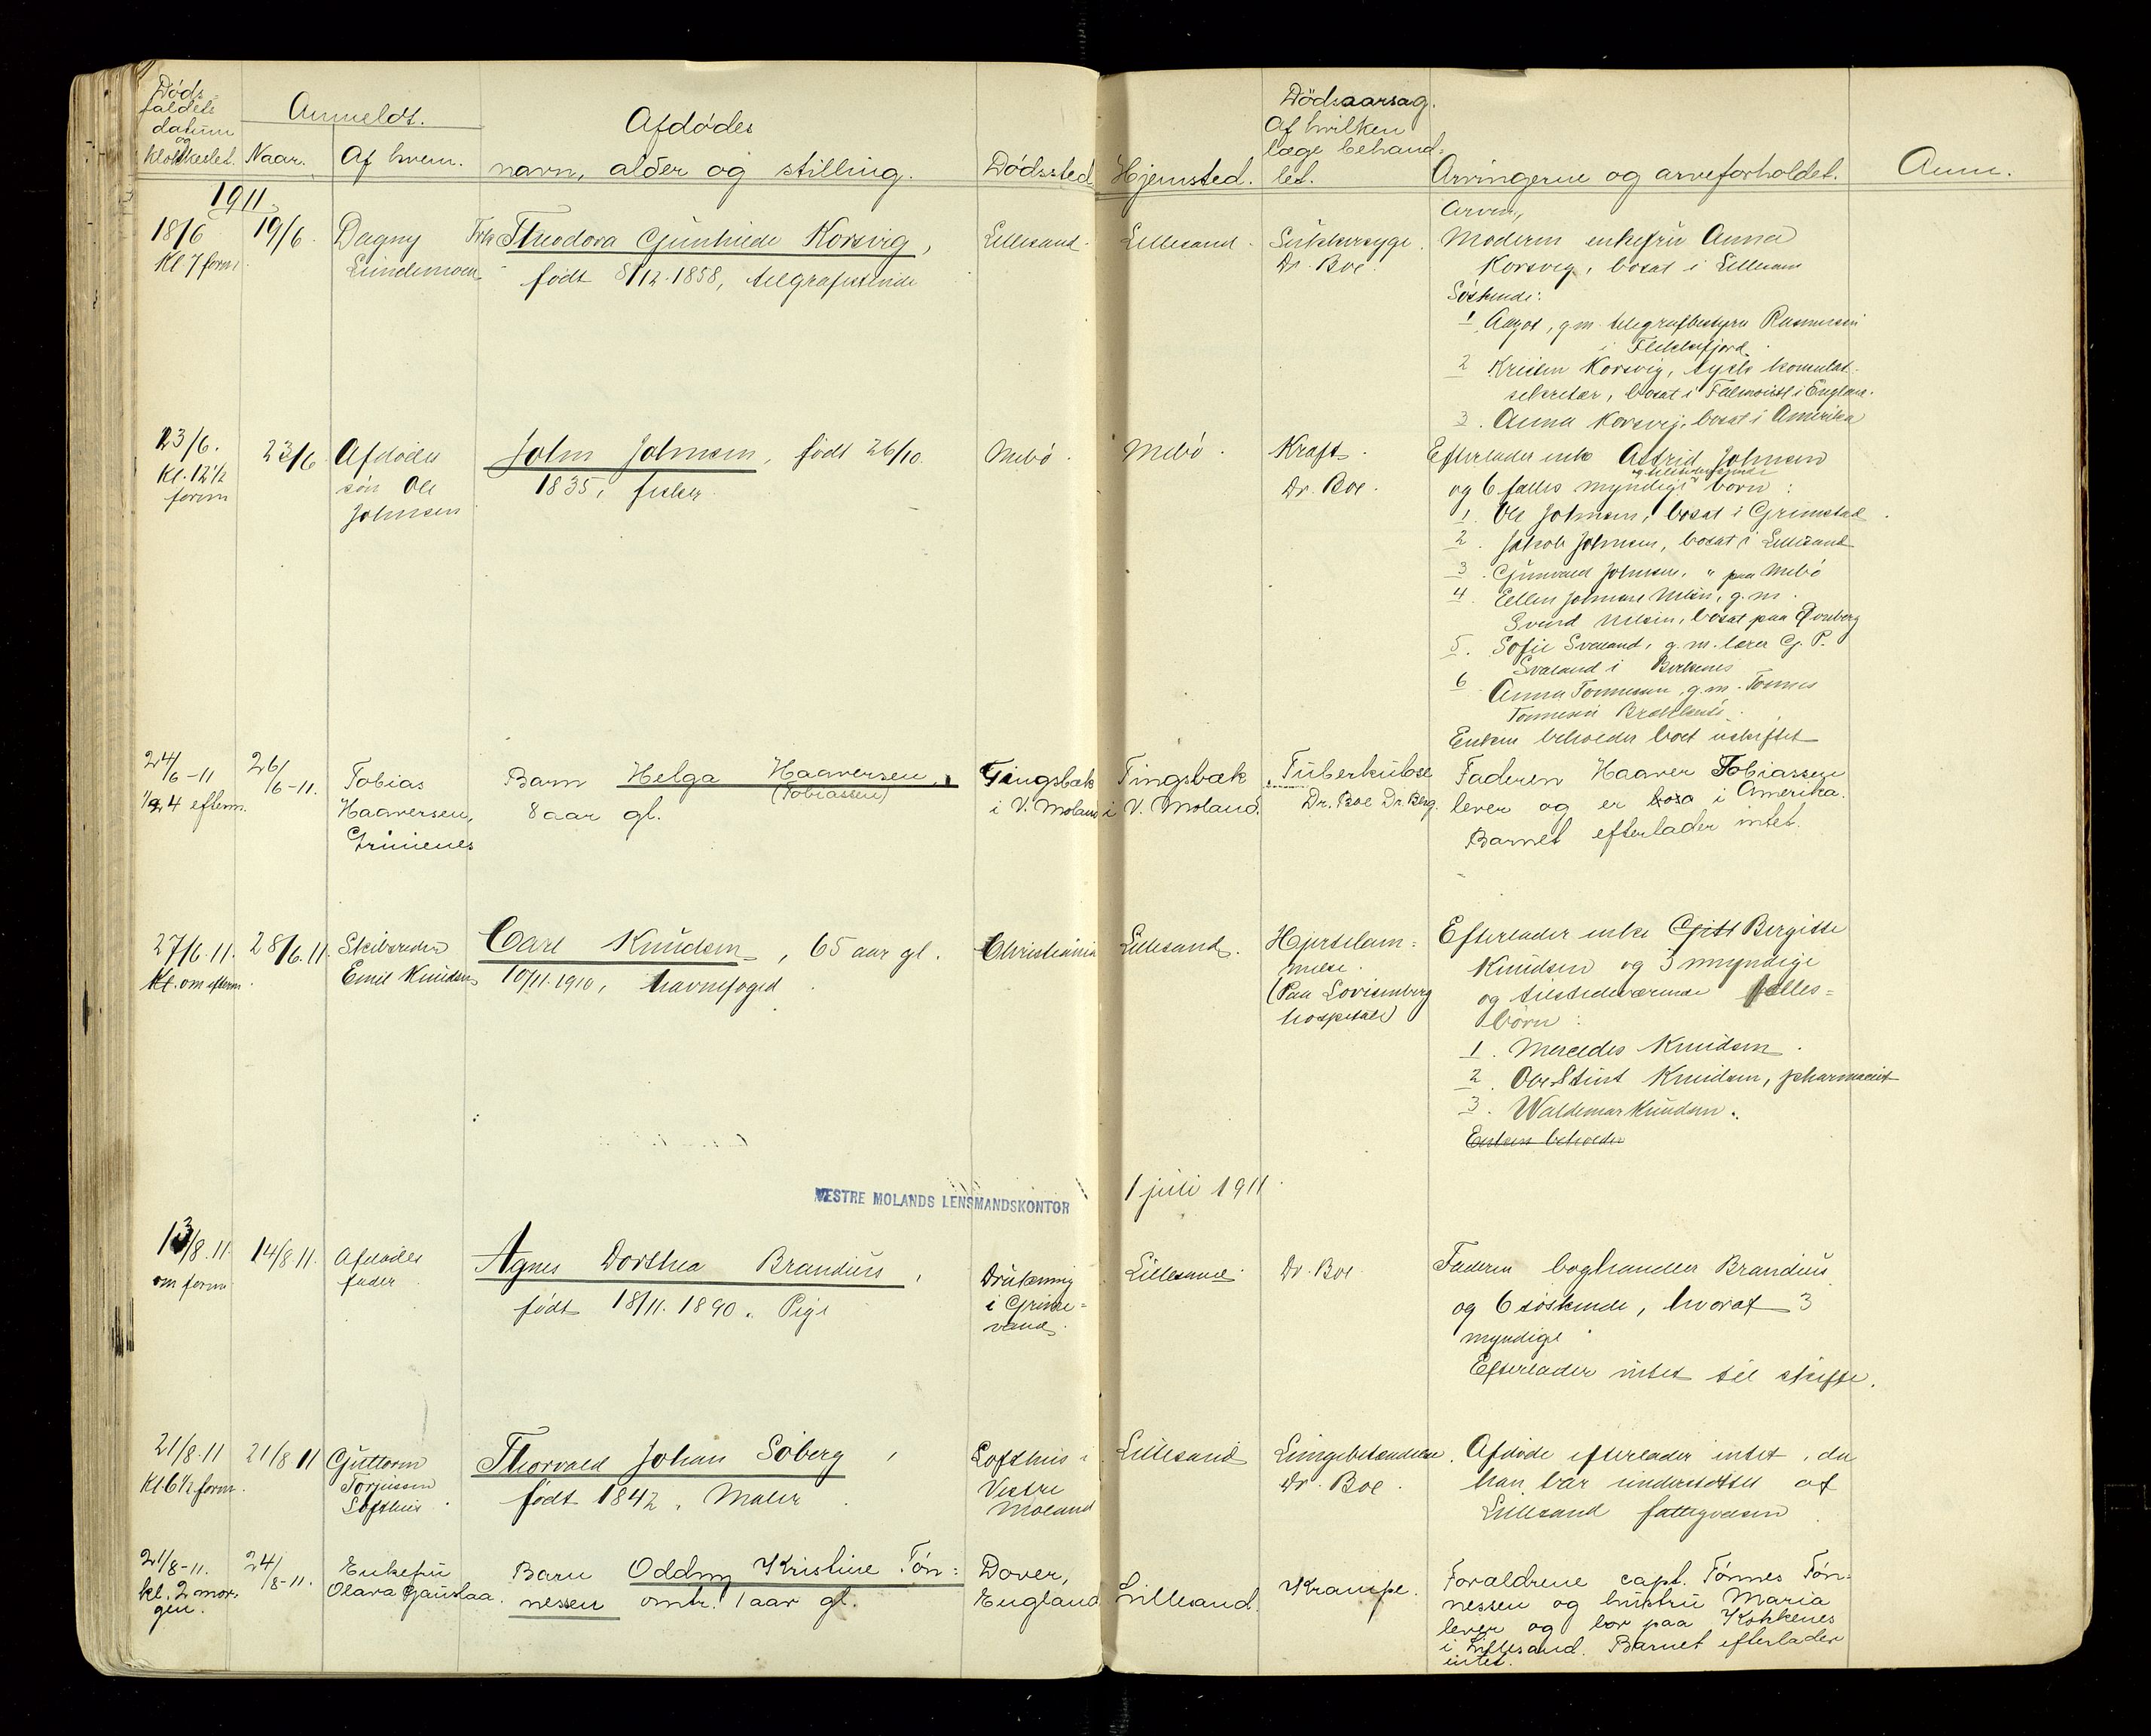 Døds-
faldets
datum
og
klokkeslet.
Anmeldt.
Naar.
Af hvem.
Afdødes
navn, alder og stilling.
Dødssted
Hjemsted.
Dödsaarsag.
Af hvilken
læge behand=
let.
Arvingerne og arveforholdet.
Anm.
1911.
18/6
Kl 7 form.
19/6.
Dagny
Lundemoen
Frk Theodora Gunhilde Korsvig,
født 8/12-1858, telegrafistinde
Lillesand.
Lillesand.
Sukkersyge.
Dr. Boe.
Arven,
Moderen enkefru Anna
Korsvig, bosat i Lillesand
Søskende:
1. Aagot, g.m. telegrafbestyrer Rasmussen
i Flekkefjord.
2 Kristen Korsvig, tysk konsulat-
sekretær, bosat i Falmouth i England.
3. Anna Korsvig, bosat i Amerika
23/6.
Kl. 12½
form
23/6
Afdødes
søn Ole
Johnsen
John Johnsen, født 26/10.
1835, fisker
Mebö.
Mebö.
Kraft.
Dr. Boe.
Efterlader enke Astrid Johnsen
og tilstedeværende
og 6 fælles myndige børn:
1. Ole Johnsen, bosat i Grimstad.
2. Jakob Johnsen, bosat i Lillesand
3. Gunvald Johnsen, " paa Mebö
4. Ellen Johnsen Nilsen, g.m.
Svend Nilsen, bosat paa
5. Sofie Svaland, g.m. lærer G. P.
Svaland i Birkenes
6 Anna Tønnesen, g.m. Tønnes
Tønnesen Brækkestø.
Enken beholder boet uskiftet
24/6-11
½ 4 efterm.
26/6-11.
Tobias
Haaversen,
Grimenes
Barn Helga Haaversen,
(Tobiassen)
8 aar gl.
Tingsbæk
i V. Moland
Tingsbæk
i V. Moland.
Tuberkulose
Dr. Boe Dr. Berg.
Faderen Haaver Tobiassen
lever og er bosa i Amerika.
Barnet efterlader intet.
27/6.11.
Kl. om efterm.
28/6.11.
Skibsreder
Emil Knudsen
Carl Knudsen, 65 aar gl.
10/11.1910, havnefoged.
Christiania
Lillesand.
Hjertelam=
melse.
(Paa Lovisenberg
hospital)
Efterlader enke Gitt Bergitte
Knudsen og 3 myndige
og tilstedeværende fælles=
børn:
1. Mercedes Knudsen.
2. Ole Stint Knudsen, pharmaceut
3. Waldemar Knudsen.
Enken beholder
VESTRE MOLANDS LENSMANDSKONTOR
1 juli 1911.
13/8.11.
om form
14/8.11.
Afdødes
fader.
Agnes Dorthea Brandius,
født 18/11.1890. Pige
Drukning
i Grime=
vand.
Lillesand.
Dr. Boe
Faderen boghandler Brandius
og 6 søskende, hvoraf 3
myndige.
Efterlader intet til skifte.
21/8.11
Kl. 6½ form.
21/8 11
Guttorm
Torjussen
Lofthus.
Thorvald Johan Söberg,
født 1842. Maler.
Lofthus i
Vestre
Moland
Lillesand
Lungebetændelse.
Dr. Boe.
Afdøde efterlader intet, da
han bar understøttet af
Lillesand fattigvæsen
21/8-11.
kl. 2 mor-
gen.
24/8-11.
Enkefru
Olava Gauslaa.
Barn Oddny Kristine Tøn=
nessen omtr. 1 aar gl.
Dover,
England
Lillesand.
Krampe.
Forældrene capt. Tønnes Tøn-
nessen og hustru Maria
lever og bor paa Kokkenes
i Lillesand. Barnet efterlader
intet.